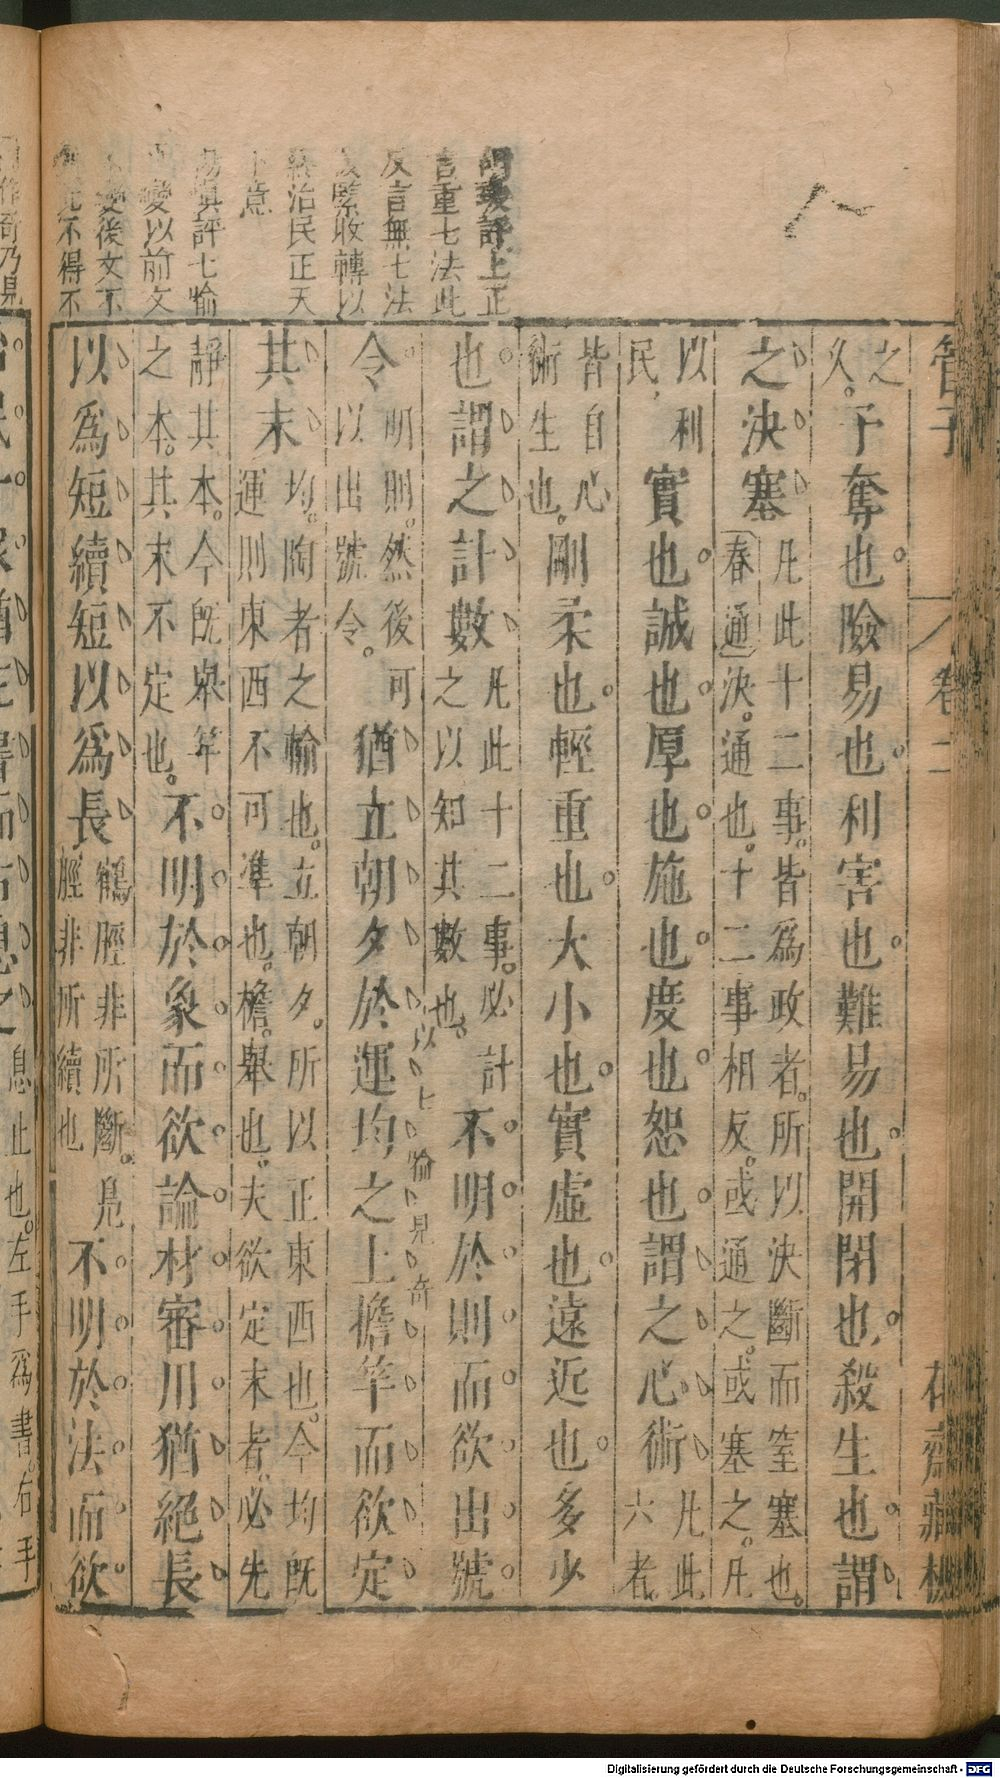 管子
卷二
花齋藏板
之
久。予奪也險易也利害也難易也開閉也殺生也謂
之決塞凡此十二事。皆爲政者。所以決斷而窒塞也。
春通決。通也。十二事相反。或通之。或塞之。凡
以利
民、實也誠也厚也施也度也恕也謂之心術凡此
六者
皆自心
術生也。剛柔也輕重也大小也實虛也遠近也多少
也謂之計數凡此十二事。必計
之以知其數也。不明於則而欲出號
以上喻見奇
令明則。然後可
以出號令。猶立朝夕於運均之上擔竿而欲定
其末均。陶者之輪也。立朝夕。所以正東西也。今均既
運則東西不可準也。檐。舉也。夫欲定末者。必先
靜其本。今既舉竿
之本。其末不定也。不明於象而欲論材審用猶絕長
以爲短續短以爲長鶴脛非所斷。鳧
脛非所續也不明於法而欲
評上正
言重七法此
反言無七法
緊收轉以
終治民正天
下意
評七喻
變以前文
變後文不
不得不
息止也。左手爲書。右手
Digitalisierung gefördert durch die Deutsche Forschungsgemeinschaft - DFG